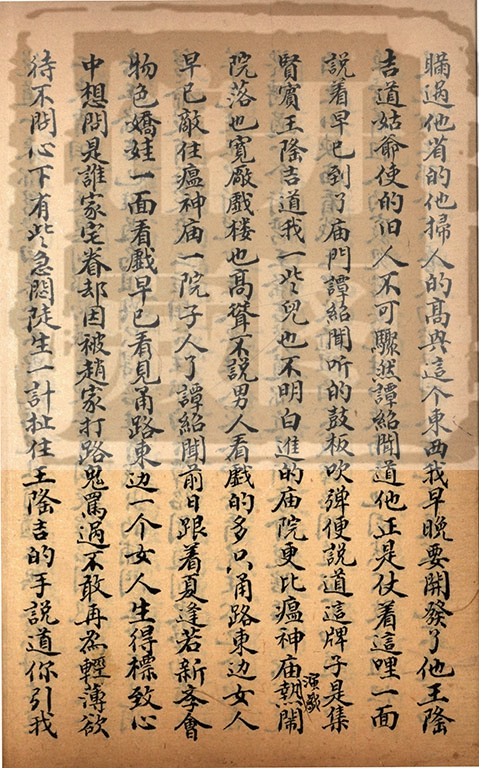 瞞過他省的他掃人的高興這个東西我早晚要開發了他王隆
吉道姑爺使的旧人不可驟然譚紹聞道他正是仗着這哩一面
説着早已到了庙門譚紹聞听的鼓板吹弹便説道這牌子是集
賢賓王隆吉道我一些兒也不明白進的庙院更比瘟神庙演戲熱鬧
院落也寬敞戲楼也高聳不說男人看戲的多只甬路東边女人
早已敵住瘟神庙一院子人了譚紹聞前日跟着夏逢若新學會
物色嬌娃一面看戲早已看見甬路東边一个女人生得標致心
中想問是誰家宅眷却因被趙家打路鬼罵過不敢再為輕薄欲
待不問心下有些急悶陡生一計扯住王隆吉的手說道你引我